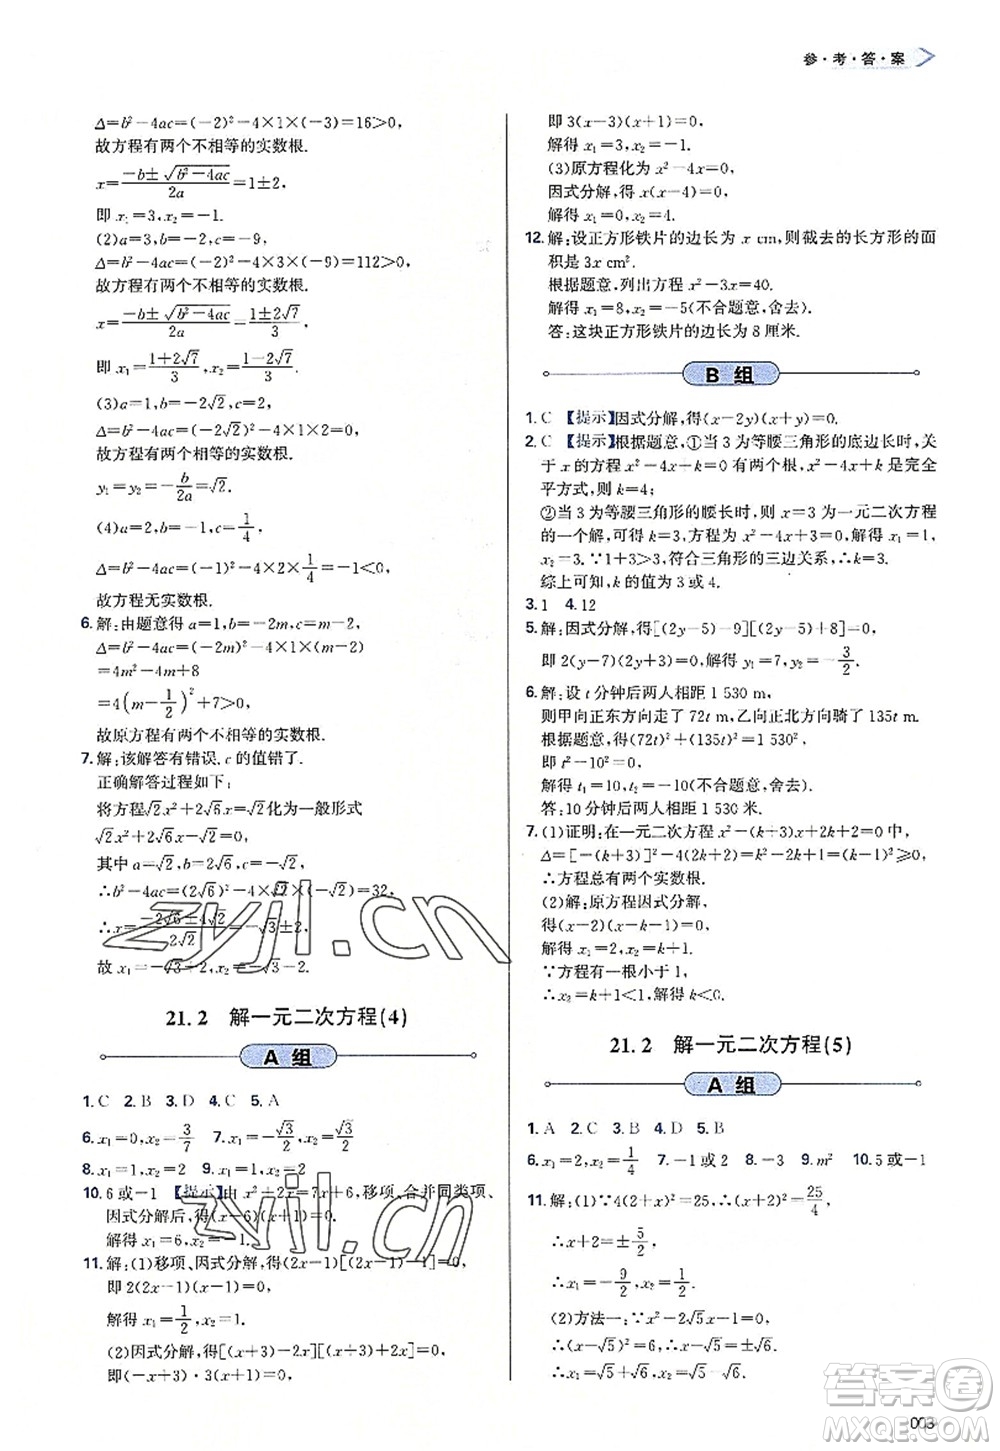 参·考·答·案
Δ=b²-4ac=(-2)²-4×1×(-3)=16>0,
故方程有两个不相等的实数根.
x=\frac{-b±\sqrt{b²-4ac}}{2a}=1±2,
即 x₁=3,x₂=-1.
(2)a=3,b=-2,c=-9,
Δ=b²-4ac=(-2)²-4×3×(-9)=112>0,
故方程有两个不相等的实数根.
x=\frac{-b±\sqrt{b²-4ac}}{2a}=\frac{1±2√7}{3},
即 x₁=\frac{1+2√7}{3},x₂=\frac{1-2√7}{3}.
(3)a=1,b=-2√2,c=2,
Δ=b²-4ac=(-2√2)²-4×1×2=0,
故方程有两个相等的实数根.
y₁=y₂=-\frac{b}{2a}=√2.
(4)a=2,b=-1,c=\frac{1}{4},
Δ=b²-4ac=(-1)²-4×2×\frac{1}{4}=-1<0,
故方程无实数根.
6.解:由题意得 a=1,b=-2m,c=m-2,
Δ=b²-4ac=(-2m)²-4×1×(m-2)
=4m²-4m+8
=4(m-\frac{1}{2})²+7>0,
故原方程有两个不相等的实数根.
7.解:该解答有错误.c的值错了.
正确解答过程如下:
将方程√2x²+2√6x=√2化为一般形式
√2x²+2√6x-√2=0,
其中 a=√2,b=2√6,c=-√2,
∴b²-4ac=(2√6)²-4×√2×(-√2)=32,
∴x=\frac{-2√6±4√2}{2√2}=-√3±2,
故 x₁=-√3+2,x₂=-√3-2.
21.2 解一元二次方程(4)
A 组
1.C 2.B 3.D 4.C 5.A
6.x₁=0,x₂=\frac{3}{7} 7.x₁=-\frac{√3}{2},x₂=\frac{√3}{2}
8.x₁=1,x₂=2 9.x₁=x₂=2
10.6或-1 【提示】由 x²+2x=7x+6,移项、合并同类项、
因式分解后,得(x-6)(x+1)=0.
解得 x₁=6,x₂=-1.
11.解:(1)移项、因式分解,得(2x-1)[(2x-1)-1]=0,
即 2(2x-1)(x-1)=0,
解得 x₁=\frac{1}{2},x₂=1.
(2)因式分解,得[(x+3)-2x](x+3+2x)=0,
即(-x+3)·3(x+1)=0,
即 3(x-3)(x+1)=0,
解得 x₁=3,x₂=-1.
(3)原方程化为 x²-4x=0,
因式分解,得 x(x-4)=0,
解得 x₁=0,x₂=4.
12.解:设正方形铁片的边长为 x cm,则截去的长方形的面
积是 3x cm².
根据题意,列出方程 x²-3x=40.
解得 x₁=8,x₂=-5(不合题意,舍去).
答:这块正方形铁片的边长为 8 厘米.
B 组
1.C 【提示】因式分解,得(x-2y)(x+y)=0.
2.C 【提示】根据题意,①当 3 为等腰三角形的底边长时,关
于 x 的方程 x²-4x+k=0 有两个根,x²-4x+k 是完全
平方式,则 k=4;
②当 3 为等腰三角形的腰长时,则 x=3 为一元二次方程
的一个解,可得 k=3,方程为 x²-4x+3=0.解得 x₁=1,
x₂=3.∵1+3>3,符合三角形的三边关系,∴k=3.
综上可知,k 的值为 3 或 4.
3.1 4.12
5.解:因式分解,得[(2y-5)-9][(2y-5)+8]=0,
即 2(y-7)(2y+3)=0.解得 y₁=7,y₂=-\frac{3}{2}.
6.解:设 t 分钟后两人相距 1 530 m,
则甲向正东方向走了 72t m,乙向正北方向骑了 135t m.
根据题意,得(72t)²+(135t)²=1 530²,
即 t²-10²=0.
解得 t₁=10,t₂=-10(不合题意,舍去).
答:10 分钟后两人相距 1 530 米.
7.(1)证明:在一元二次方程 x²-(k+3)x+2k+2=0 中,
Δ=[-(k+3)]²-4(2k+2)=k²-2k+1=(k-1)²≥0,
∴方程总有两个实数根.
(2)解:原方程因式分解,
得(x-2)(x-k-1)=0,
解得 x₁=2,x₂=k+1.
∵方程有一根小于 1,
∴x₂=k+1<1,解得 k<0.
21.2 解一元二次方程(5)
A 组
1.A 2.C 3.B 4.D 5.B
6.x₁=2,x₂=\frac{1}{4} 7.-1 或 2 8.-3 9.m² 10.5 或-1
11.解:(1)∵4(2+x)²=25,∴(x+2)²=\frac{25}{4},
∴x+2=±\frac{5}{2}.
∴x₁=-\frac{9}{2},x₂=\frac{1}{2}.
(2)方法一:∵x²-2√5x-1=0,
∴(x-√5)²=6,∴x-√5=±√6,
∴x₁=√5+√6,x₂=√5-√6.
003
zyjl.cn
zyjl.cn
答案圈
MXQE.COM